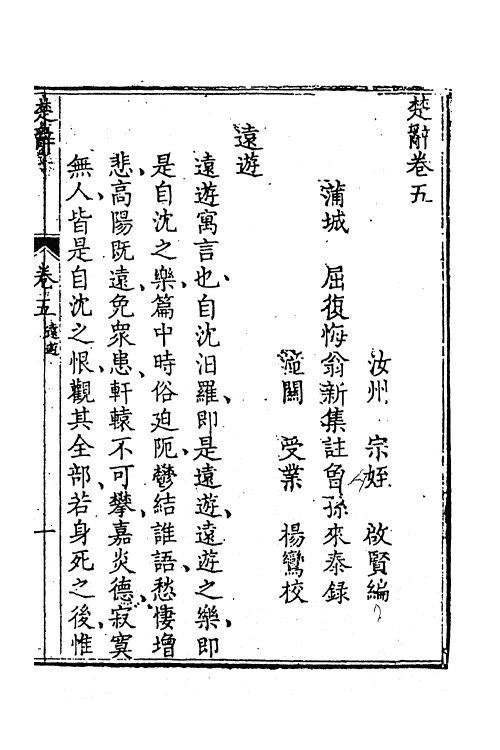 楚辭卷五
汝州　宗姪　啟賢編
蒲城　屈復悔翁新集註曾孫來泰録
潼關　受業　楊鸞校
遠遊
遠遊寓言也自沈汨羅即是遠遊遠遊之樂即
是自沈之樂篇中時俗廹阨鬱結誰語愁悽增
悲高陽既遠免衆患軒轅不可攀嘉炎德寂寞
無人皆是自沈之恨觀其全部若身死之後惟
楚辭
卷五
遠遊
一